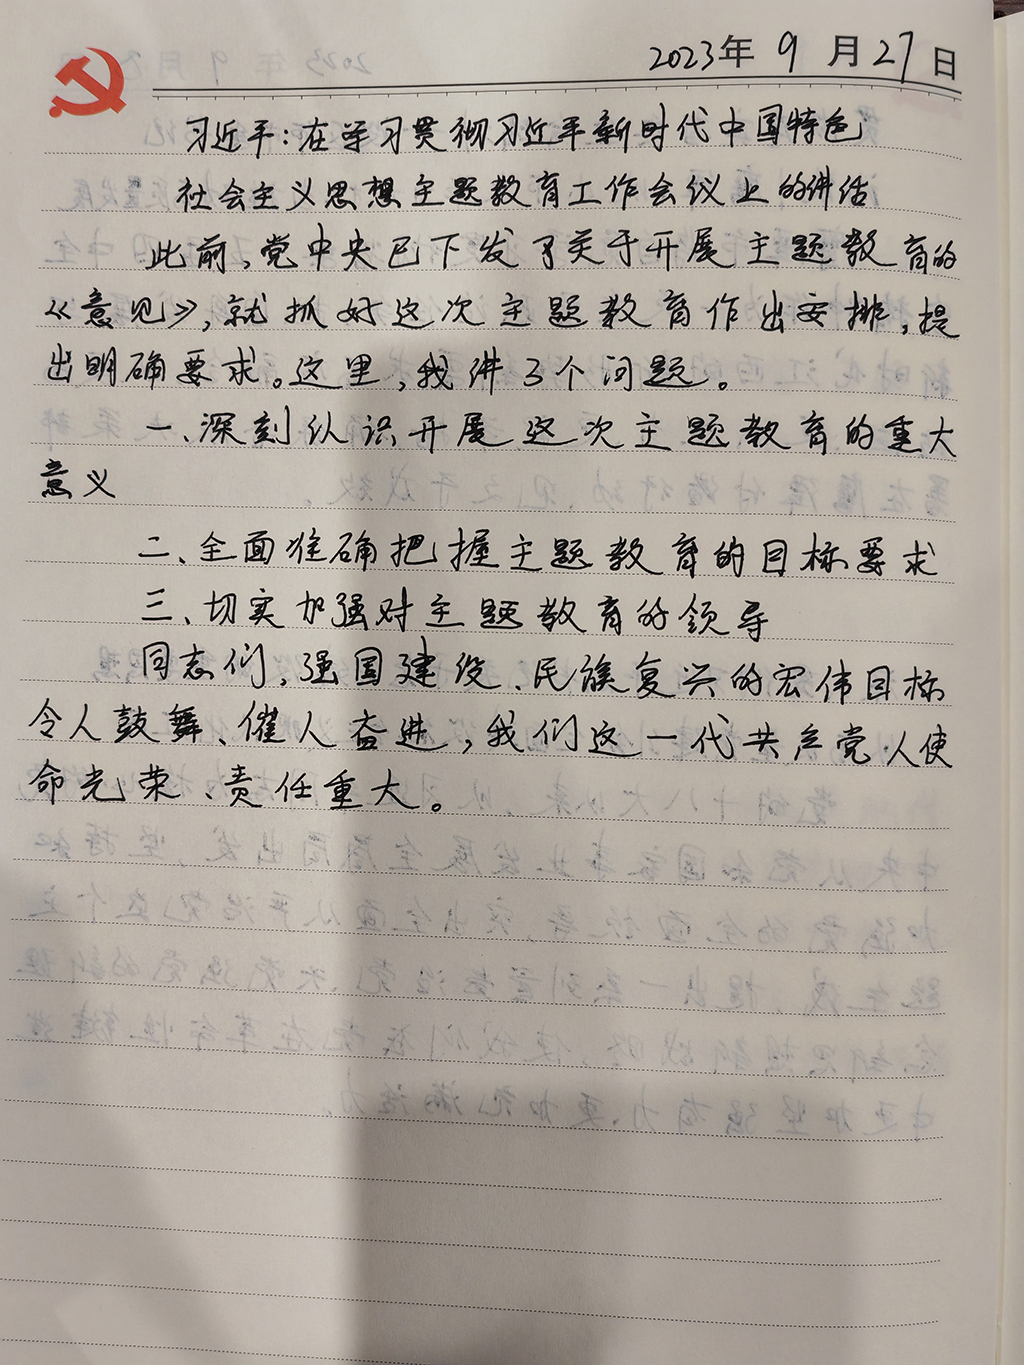 2023年 9 月 27 日
习近平:在学习贯彻习近平新时代中国特色
社会主义思想主题教育工作会议上的讲话
此前,党中央已下发了关于开展主题教育的
《意见》,就抓好这次主题教育作出安排,提
出明确要求。这里,我讲3个问题。
一、深刻认识开展这次主题教育的重大
意义
二、全面准确把握主题教育的目标要求
三、切实加强对主题教育的领导
同志们,强国建设、民族复兴的宏伟目标
令人鼓舞、催人奋进,我们这一代共产党人使
命光荣、责任重大。